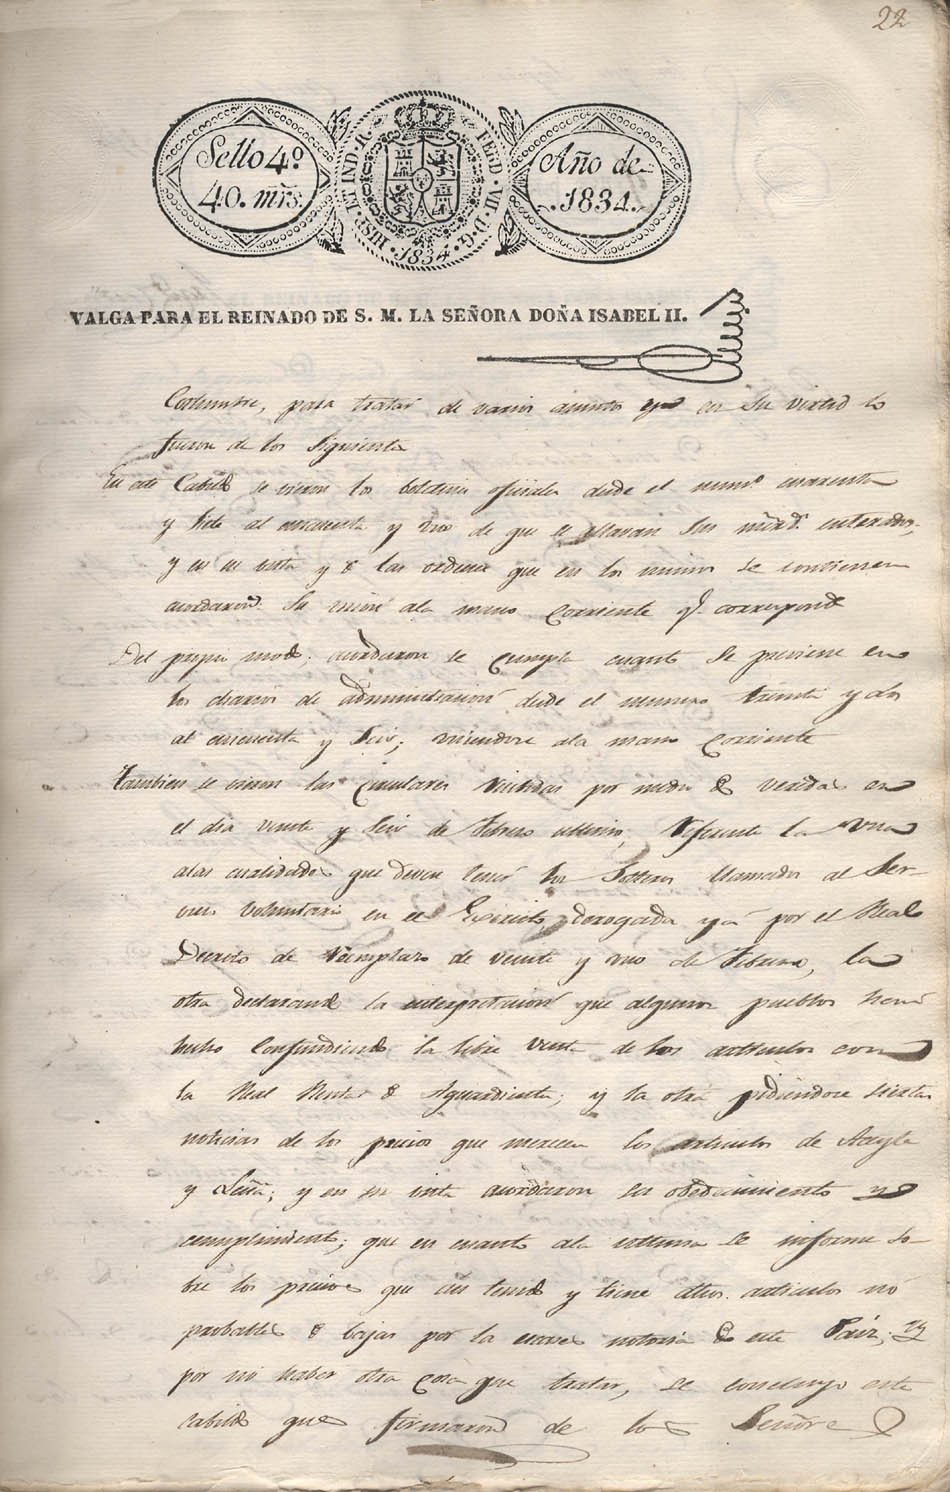 22
Sello 4º
40. mrs.
HISP. ET IND. R. FERD. VII. D. G.
1834
Año de
1834.
VALGA PARA EL REINADO DE S. M. LA SEÑORA DOÑA ISABEL II.
Costumbre, para tratar de varios asuntos y en su virtud lo
ficieron de los siguientes
En este Cabildo se vieron los boletines oficiales desde el numº cuarenta
y siete al cincuenta y uno de que se
y en su vista y de las ordenes que en los mismos se contienen
acordaron su union ala mano corriente q.e corresponde
Del propio modo, acordaron se cumpla cuanto se previene en
los diarios de administracion desde el numero treinta y dos
al cincuenta y seis, uniendose ala mano corriente
Tambien se vieron las circulares recibidas por medio de vereda en
el dia veinte y seis de Febrero ultimo, referente la una
alas cualidades que deven tener los llamados al Ser-
vicio voluntario en el Exercito, derogada ya por el Real
Decreto de reemplazo de veinte y uno de Febrero, la
otra declarando la interpretacion que algunos pueblos han
hecho confundiendo la libre venta de los articulos con
la Real Renta de Aguardiente; y la otra pidiendose ciertas
noticias de los precios que merecen los articulos de Aceyte
y Leña; y en su vista acordaron su obedecimiento y
cumplimiento; que en cuanto ala ultima se informe so-
bre los precios que han tenido y tiene dhos. articulos no
probables de bajar por la notoria de este Pais; y
por no haber otra cosa que tratar, se concluyo este
cabildo que firmaron de los Señores